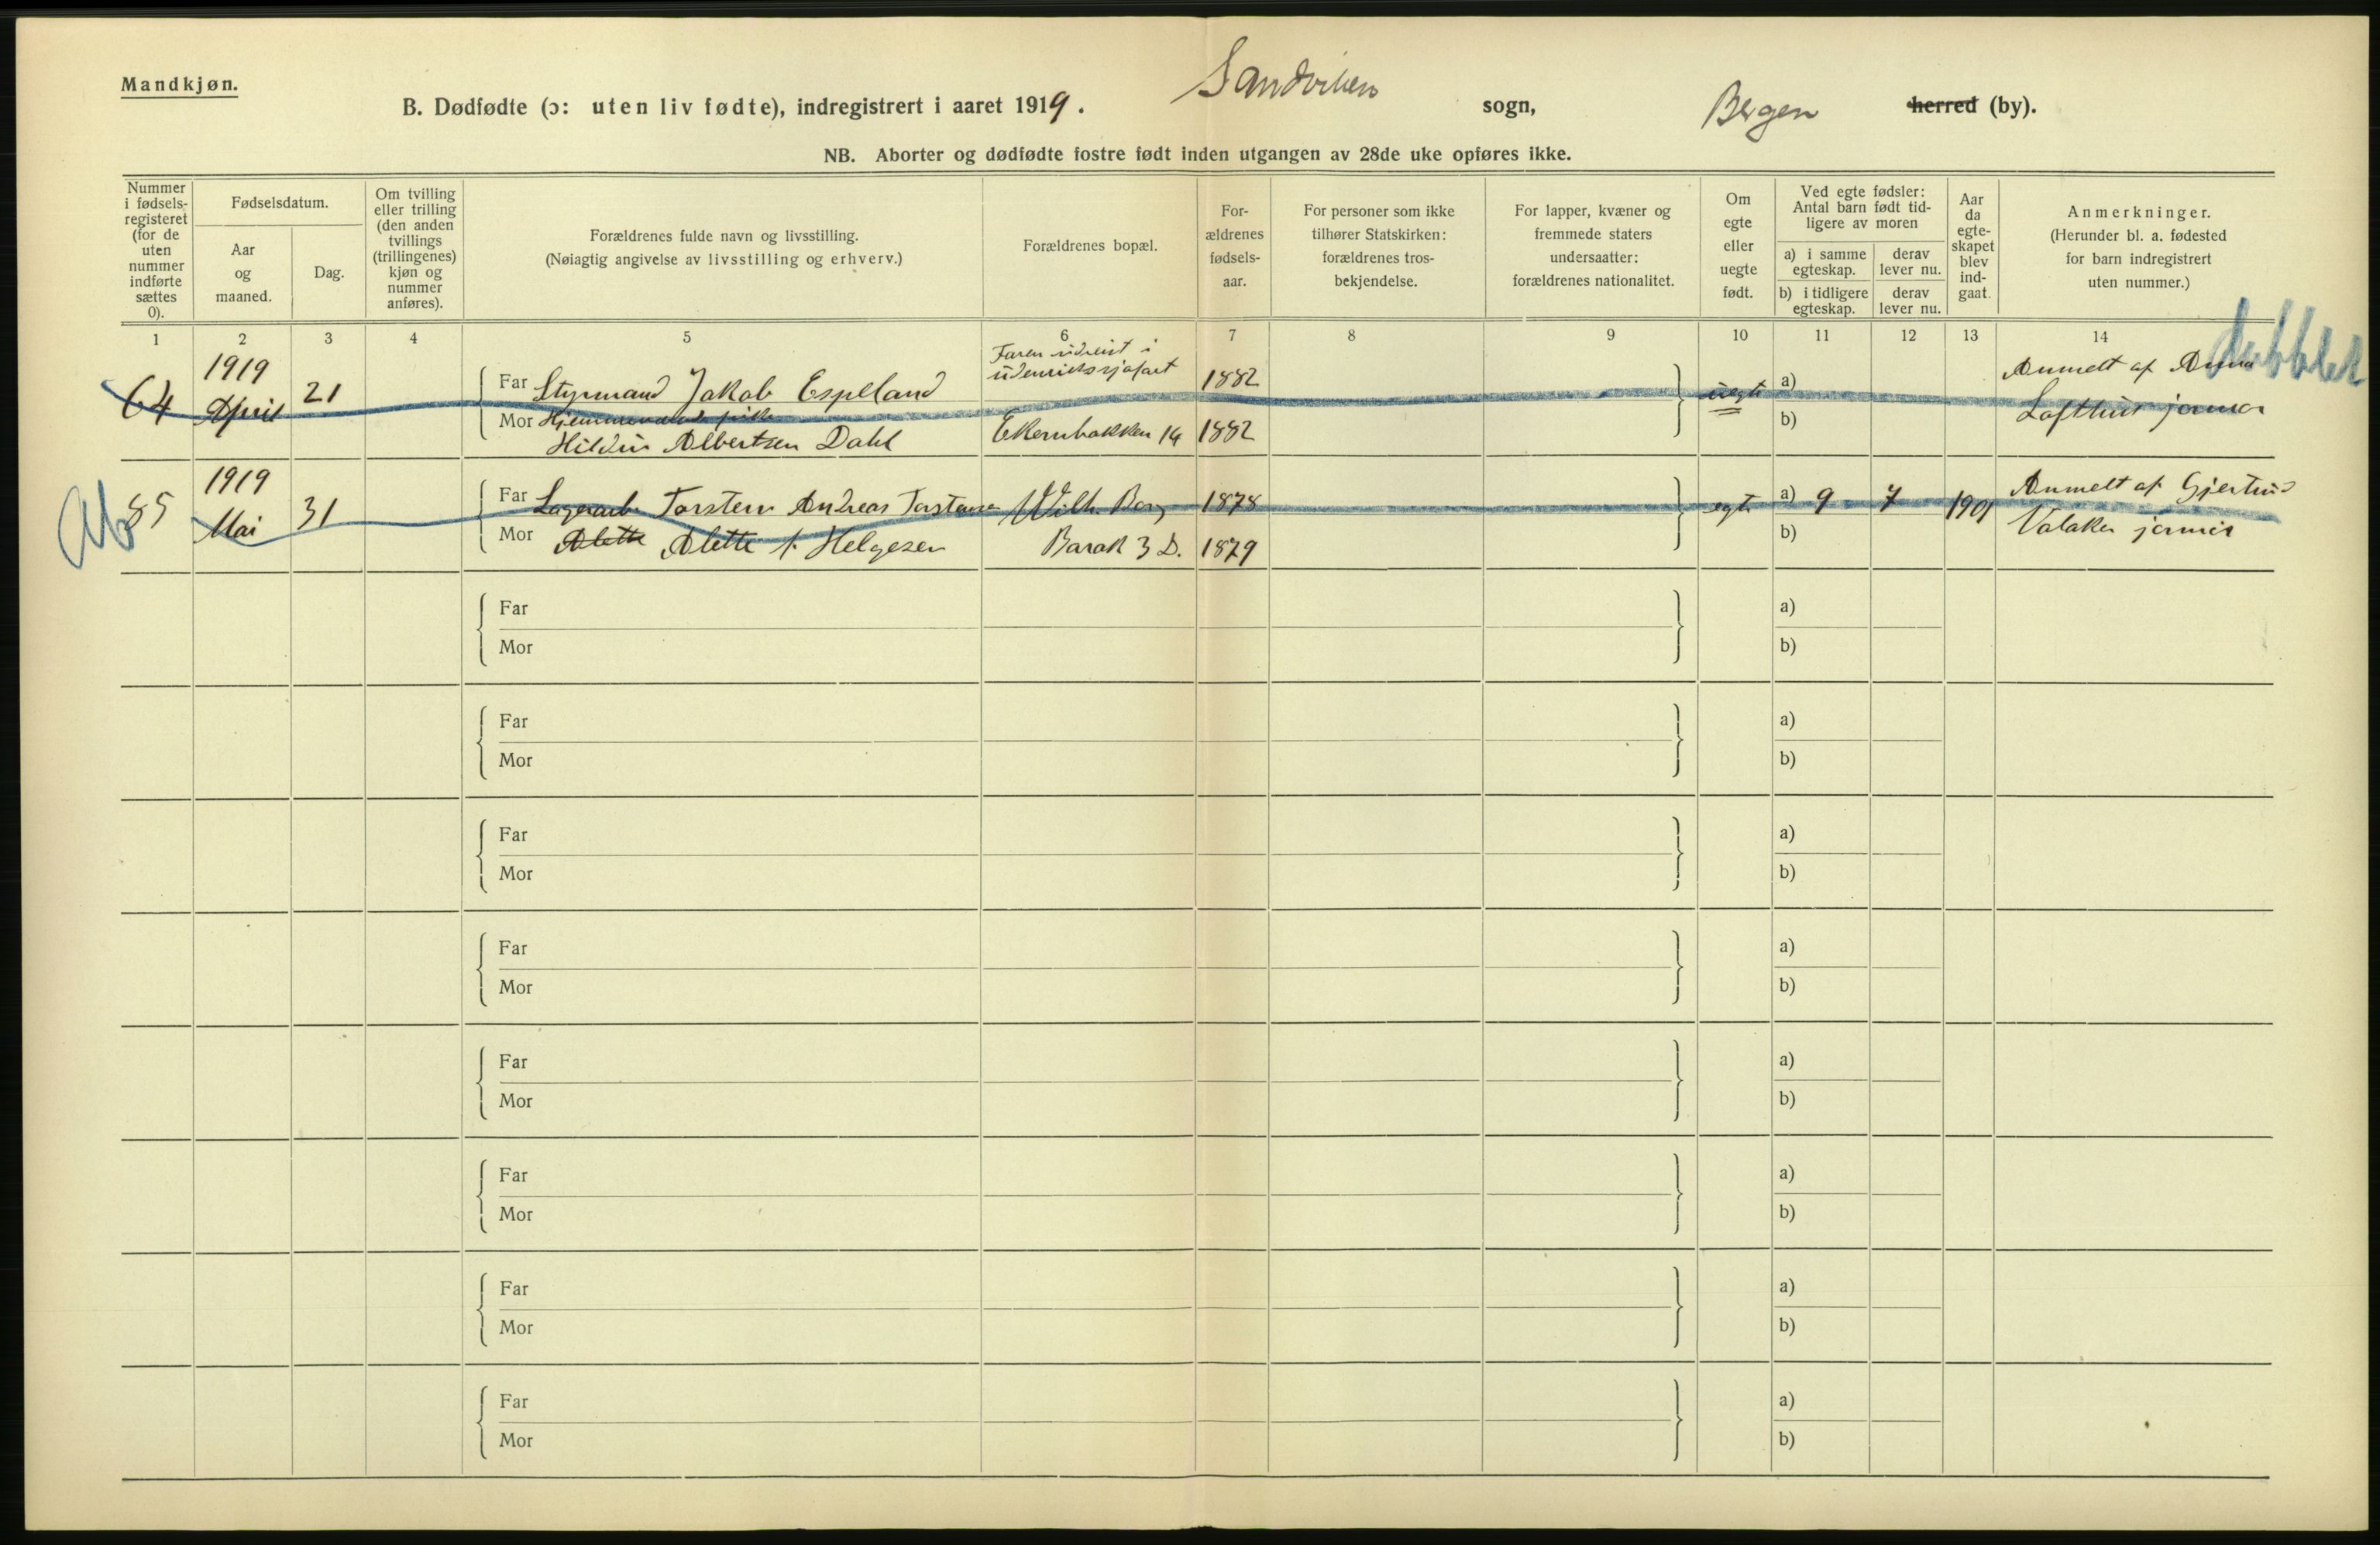 Mandkjøn.
B. Dødfødte (ɔ: uten liv fødte), indregistrert i aaret 1919. Sandviken sogn, Bergen herred (by).
NB. Aborter og dødfødte fostre født inden utgangen av 28de uke opføres ikke.
Nummer
i fødsels-
registeret
(for de
uten
nummer
indførte
sættes
0).
Fødselsdatum.
Aar
og
maaned.
Dag.
Om tvilling
eller trilling
(den anden
tvillings
(trillingenes)
kjøn og
nummer
anføres).
Forældrenes fulde navn og livsstilling.
(Nøiagtig angivelse av livsstilling og erhverv.)
Forældrenes bopæl.
For-
ældrenes
fødsels-
aar.
For personer som ikke
tilhører Statskirken:
forældrenes tros-
bekjendelse.
For lapper, kvæner og
fremmede staters
undersaatter:
forældrenes nationalitet.
Om
egte
eller
uegte
født.
Ved egte fødsler:
Antal barn født tid-
ligere av moren
a) i samme
egteskap.
derav
lever nu.
b) i tidligere
egteskap.
derav
lever nu.
Aar
da
egte-
skapet
blev
ind-
gaat.
Anmerkninger.
(Herunder bl. a. fødested
for barn indregistrert
uten nummer.)
1 2 3 4 5 6 7 8 9 10 11 12 13 14
64
1919
April
21
Far Styrmand Jakob Espeland
Mor
Hildur Albertsen Dahl
Faren udreist i
udenrikssjøfart
Ekernbakken 14
1882
1882
uegte
a)
b)
Anmeldt af Anna
Lofthus jormor
dubblet
85
1919
Mai
31
Far Lagerarb. Torsten Andreas Torstensen
Mor Alette Alette f. Helgesen
Wilh. Berg
Barak 3 D.
1878
1879
egte
a) 9 7
b)
1901
Anmelt af Gjertrud
Valaker jormor
Far
Mor
a)
b)
Far
Mor
a)
b)
Far
Mor
a)
b)
Far
Mor
a)
b)
Far
Mor
a)
b)
Far
Mor
a)
b)
Far
Mor
a)
b)
Far
Mor
a)
b)